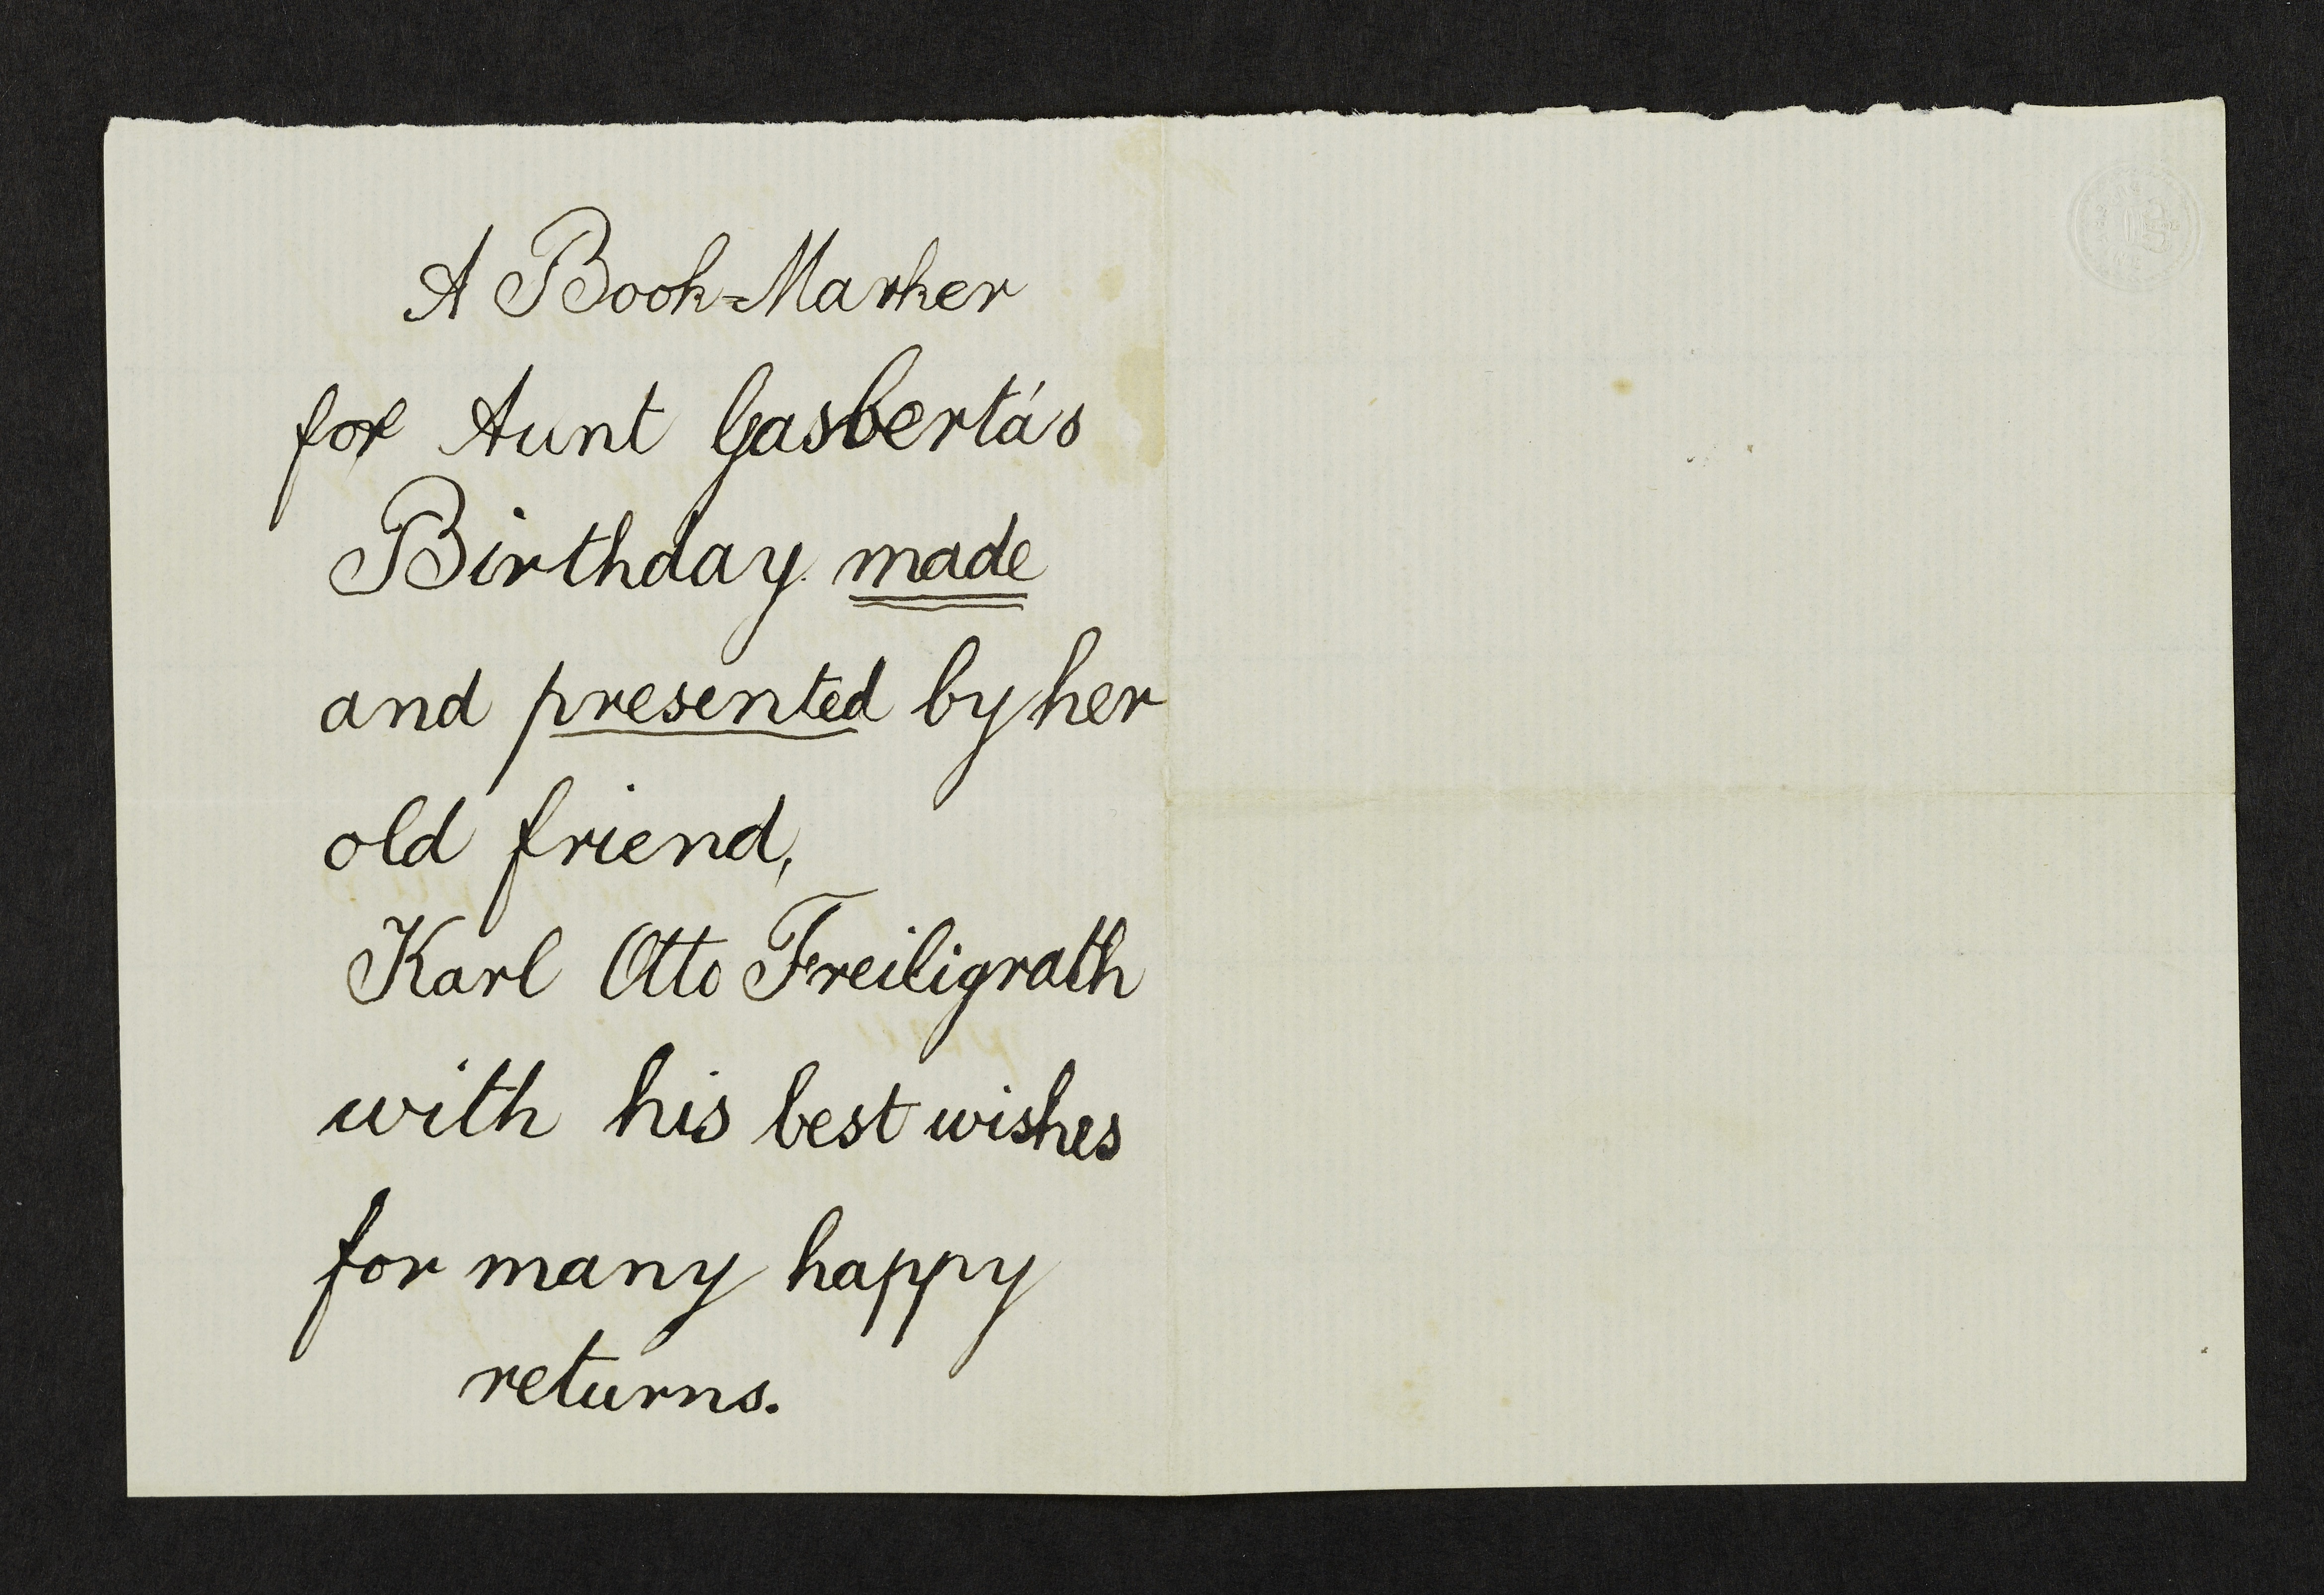 A Book-Marker
for Aunt Gasberta's
Birthday made
and presented by her
old friend,
Karl Otto Freiligrath
with his best wishes
for many happy
returns.